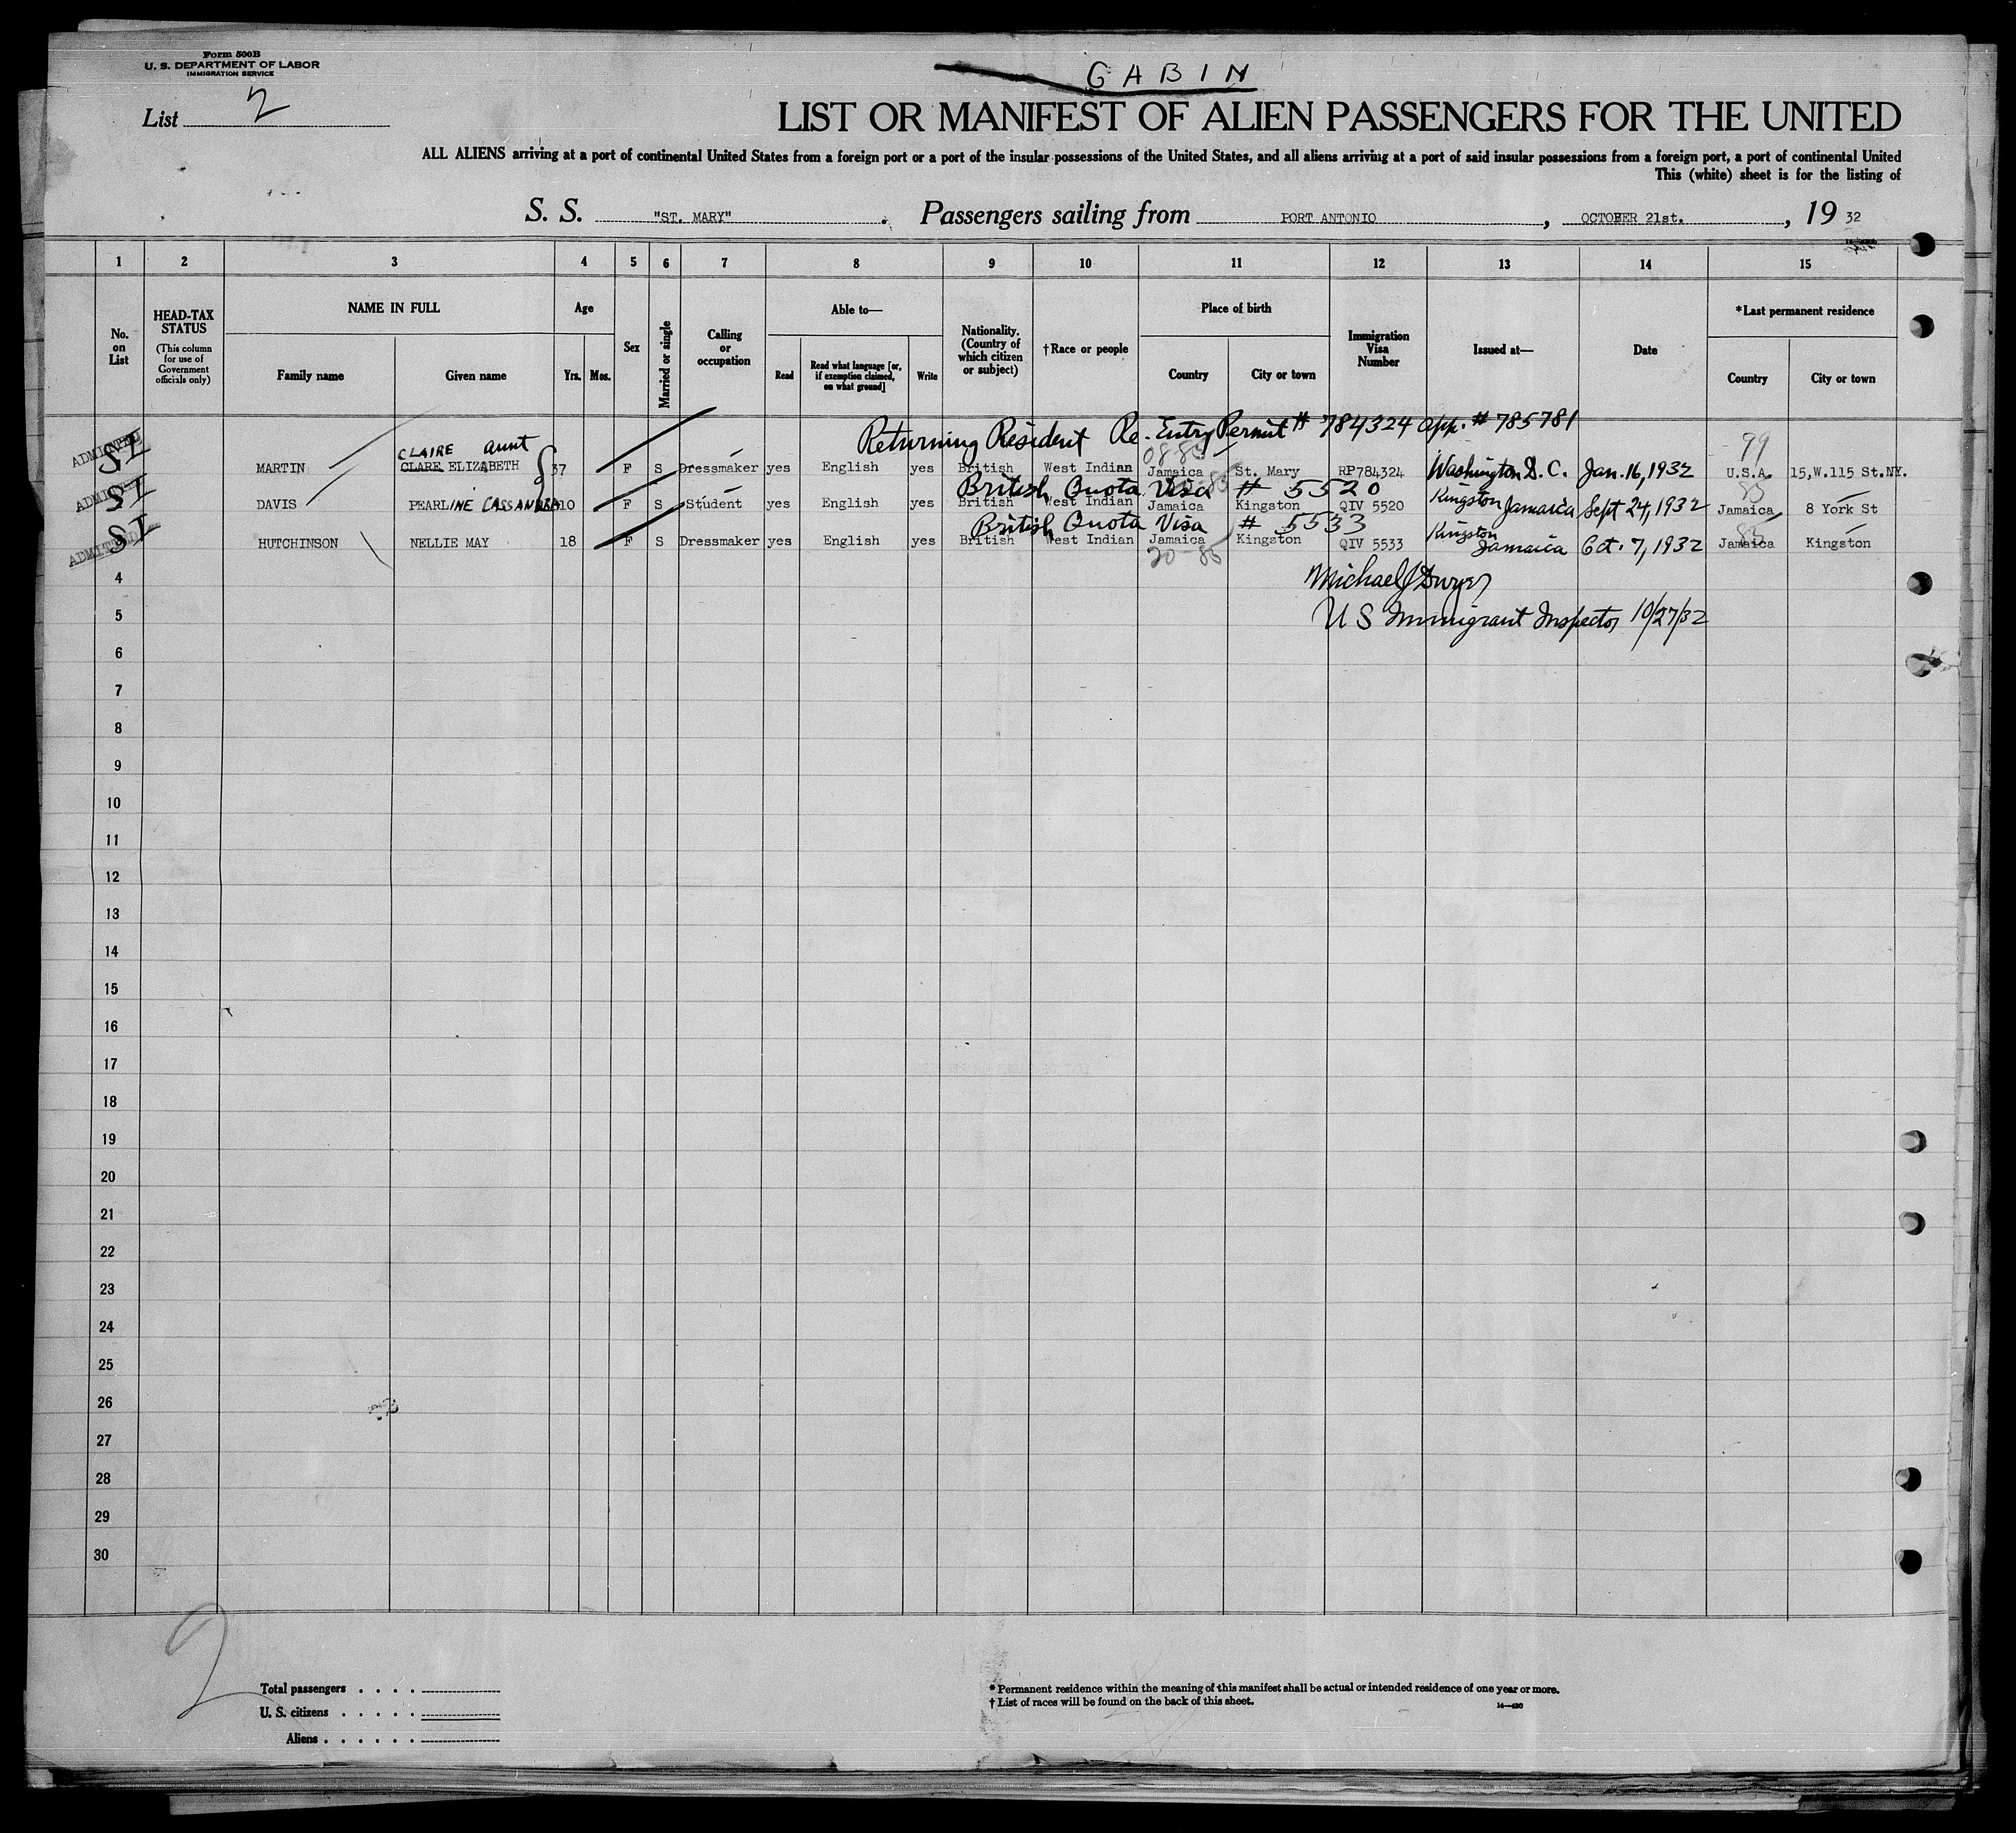 Form 500B
U. S. DEPARTMENT OF LABOR
IMMIGRATION SERVICE
GABIN
List 2
LIST OR MANIFEST OF ALIEN PASSENGERS FOR THE UNITED
ALL ALIENS arriving at a port of continental United States from a foreign port or a port of the insular possessions of the United States, and all aliens arriving at a port of said insular possessions from a foreign port, a port of continental United
This (white) sheet is for the listing of
S. S. "ST. MARY" . Passengers sailing from PORT ANTONIO , OCTOBER 21st. , 19 32
1 2 3 4 5 6 7 8 9 10 11 12 13 14 15
No. on List
HEAD-TAX STATUS
(This column for use of Government officials only)
NAME IN FULL
Family name Given name
Age
Yrs. Mos.
Sex
Married or single
Calling or occupation
Able to—
Read
Read what language [or, if exemption claimed, on what ground]
Write
Nationality. (Country of which citizen or subject)
†Race or people
Place of birth
Country City or town
Immigration Visa Number
Issued at—
Date
*Last permanent residence
Country City or town
Returning Resident Re-Entry Permit # 784324 app. # 785781
CLAIRE aunt 08-85 99
ADMITTED SI MARTIN CLARE ELIZABETH 37 F S Dressmaker yes English yes British West Indian Jamaica St. Mary RP784324 Washington D.C. Jan. 16, 1932 U.S.A. 15,W.115 St.NY.
British Quota Visa # 5520 85
ADMITTED SI DAVIS PEARLINE CASSANDRA 10 F S Student yes English yes British West Indian Jamaica Kingston QIV 5520 Kingston Jamaica Sept 24, 1932 Jamaica 8 York St
British Quota Visa # 5533 85
ADMITTED SI HUTCHINSON NELLIE MAY 18 F S Dressmaker yes English yes British West Indian Jamaica Kingston QIV 5533 Kingston Jamaica Oct. 7, 1932 Jamaica Kingston
20-85
4 Michael J Dwyer
5 U S Immigrant Inspector 10/27/32
6
7
8
9
10
11
12
13
14
15
16
17
18
19
20
21
22
23
24
25
26
27
28
29
30
2
Total passengers . . . .
U. S. citizens . . . . .
Aliens . . . . . .
* Permanent residence within the meaning of this manifest shall be actual or intended residence of one year or more.
† List of races will be found on the back of this sheet.
14—430